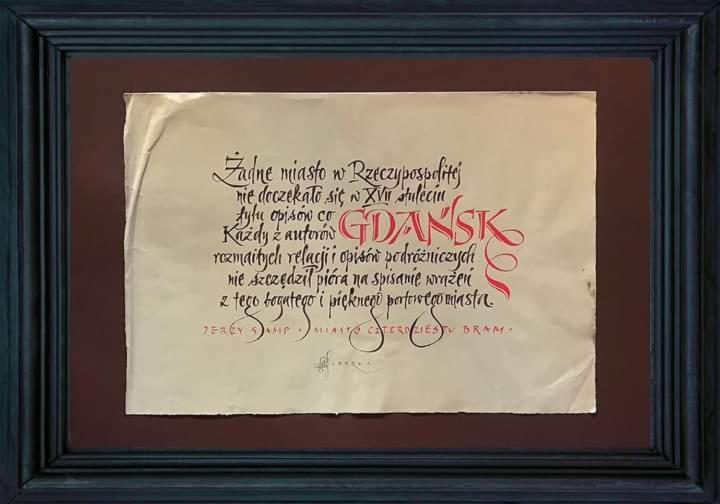 Żadne miasto w Rzeczypospolitej
nie doczekało się w XVII stuleciu
tylu opisów co GDAŃSK
Każdy z autorów
rozmaitych relacji i opisów podróżniczych
nie szczędził pióra na spisanie wrażeń
z tego bogatego i pięknego portowego miasta.
JERZY SAMP · MIASTO CZTERDZIESTU BRAM ·